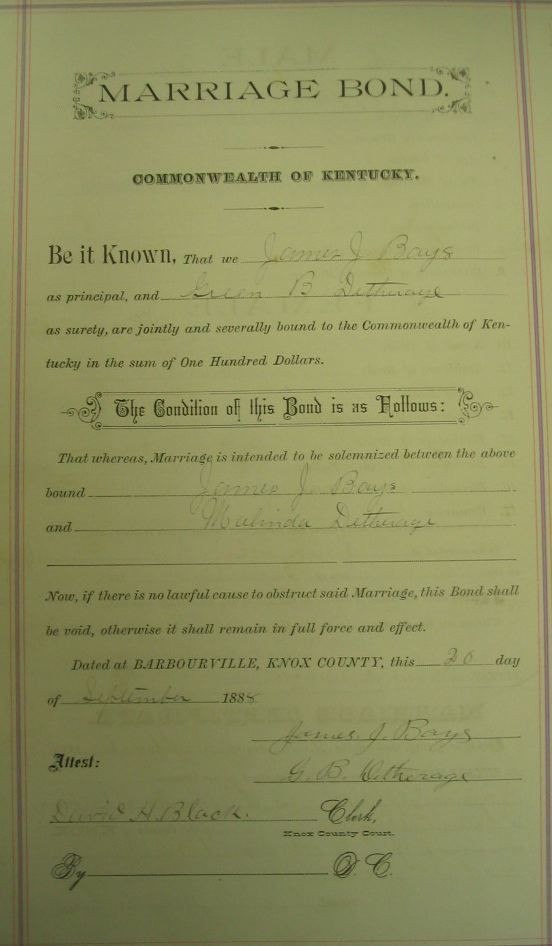 MARRIAGE BOND.
COMMONWEALTH OF KENTUCKY.
Be it Known, That we James J Bays
as principal, and Green B Detherage
as surety, are jointly and severally bound to the Commonwealth of Ken-
tucky in the sum of One Hundred Dollars.
The Condition of this Bond is as Follows:
That whereas, Marriage is intended to be solemnized between the above
bound James J. Bays
and Malinda Detherage
Now, if there is no lawful cause to obstruct said Marriage, this Bond shall
be void, otherwise it shall remain in full force and effect.
Dated at BARBOURVILLE, KNOX COUNTY, this 20 day
of September 1888
James J. Bays
Attest:
G. B. Detherage
David H. Black. Clerk,
Knox County Court.
By D. C.